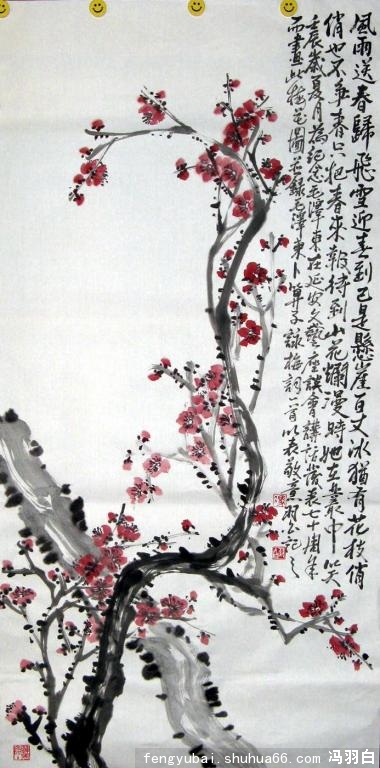 風雨送春歸飛雪迎春到已是懸崖百丈冰猶有花枝俏
俏也不爭春只把春來報待到山花爛漫時她在叢中笑
壬辰歲夏月為紀念毛澤東在延安文藝座談會講話發表七十周年
而畫此梅花圖並錄毛澤東卜算子詠梅詞一首以表敬意羽白記之
fengyubai.shuhua66.com 冯羽白